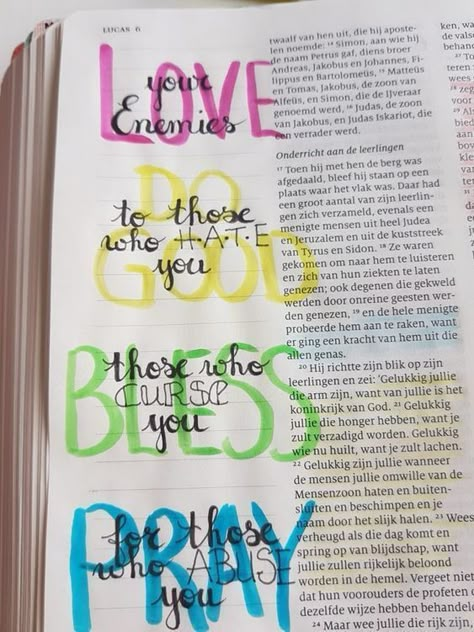 LUCAS 6
LOVE
your
Enemies
DO
to those
who H·A·T·E
GOOD
you
BLESS
those who
CURSE
you
PRAY
for those
who ABUSE
you
twaalf van hen uit, die hij aposte-
len noemde: 14 Simon, aan wie hij
de naam Petrus gaf, diens broer
Andreas, Jakobus en Johannes, Fi-
lippus en Bartolomeüs, 15 Matteüs
en Tomas, Jakobus, de zoon van
Alfeüs, en Simon, die de IJveraar
genoemd werd, 16 Judas, de zoon
van Jakobus, en Judas Iskariot, die
een verrader werd.
Onderricht aan de leerlingen
17 Toen hij met hen de berg was
afgedaald, bleef hij staan op een
plaats waar het vlak was. Daar had
een groot aantal van zijn leerlin-
gen zich verzameld, evenals een
menigte mensen uit heel Judea
en Jeruzalem en uit de kuststreek
van Tyrus en Sidon. 18 Ze waren
gekomen om naar hem te luisteren
en zich van hun ziekten te laten
genezen; ook degenen die gekweld
werden door onreine geesten wer-
den genezen, 19 en de hele menigte
probeerde hem aan te raken, want
er ging een kracht van hem uit die
allen genas.
20 Hij richtte zijn blik op zijn
leerlingen en zei: 'Gelukkig jullie
die arm zijn, want van jullie is het
koninkrijk van God. 21 Gelukkig
jullie die honger hebben, want je
zult verzadigd worden. Gelukkig
wie nu huilt, want je zult lachen.
22 Gelukkig zijn jullie wanneer
de mensen jullie omwille van de
Mensenzoon haten en buiten-
sluiten en beschimpen en je
naam door het slijk halen. 23 Wees
verheugd als die dag komt en
spring op van blijdschap, want
jullie zullen rijkelijk beloond
worden in de hemel. Vergeet niet
dat hun voorouders de profeten op
dezelfde wijze hebben behandeld.
24 Maar wee jullie die rijk zijn,